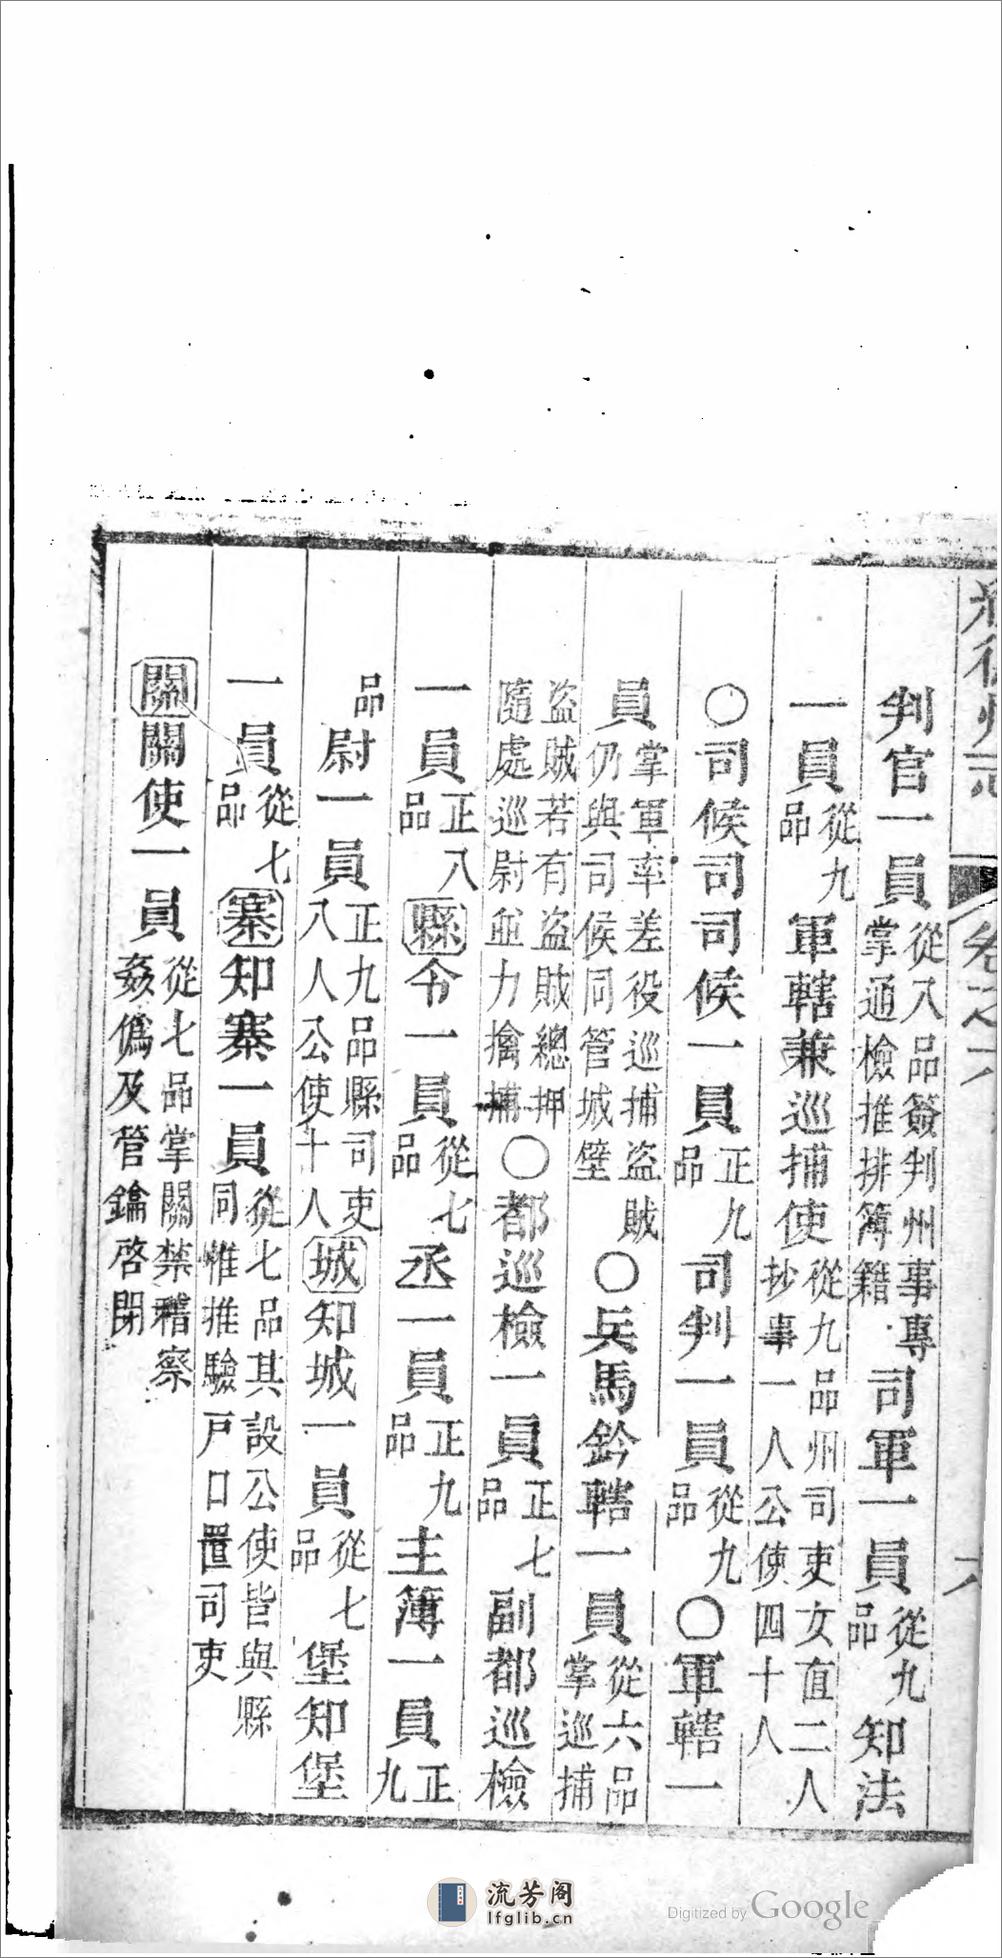 綏德州志 卷之六 六
判官一員從八品簽判州事專掌通檢推排簿籍司軍一員從九品知法
一員從九品軍轄兼巡捕使從九品州司吏女直二人抄事一人公使四十人
○司候司司候一員正九品司判一員從九品○軍轄一
員掌軍率差役巡捕盜賊仍與司候同管城壁○兵馬鈐轄一員從六品掌巡捕
盜賊若有盜賊總押隨處巡尉並力擒捕○都巡檢一員正七品副都巡檢
一員正八品縣令一員從七品丞一員正九品主簿一員正九
品尉一員正九品縣司吏八人公使十人城知城一員從七品堡知堡
一員從七品寨知寨一員從七品其設公使皆與縣同惟推驗戶口置司吏
關關使一員從七品掌關禁稽察姦僞及管鑰啓閉
流芳阁
lfglib.cn
Digitized by Google